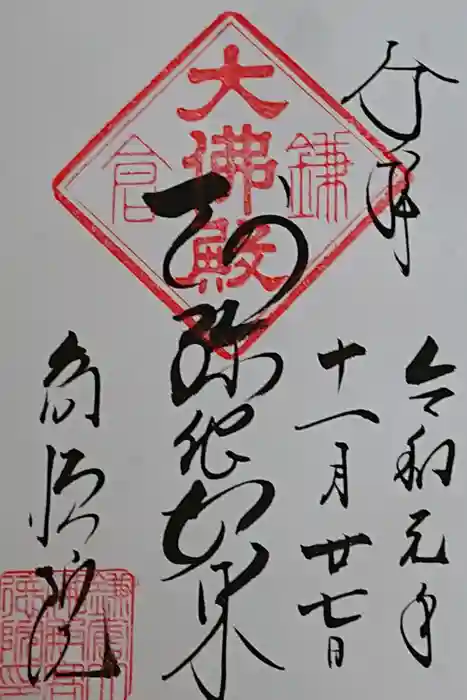 奉拝
令和元年
十一月廿七日
鎌倉
大佛殿
阿弥陀如来
高徳院